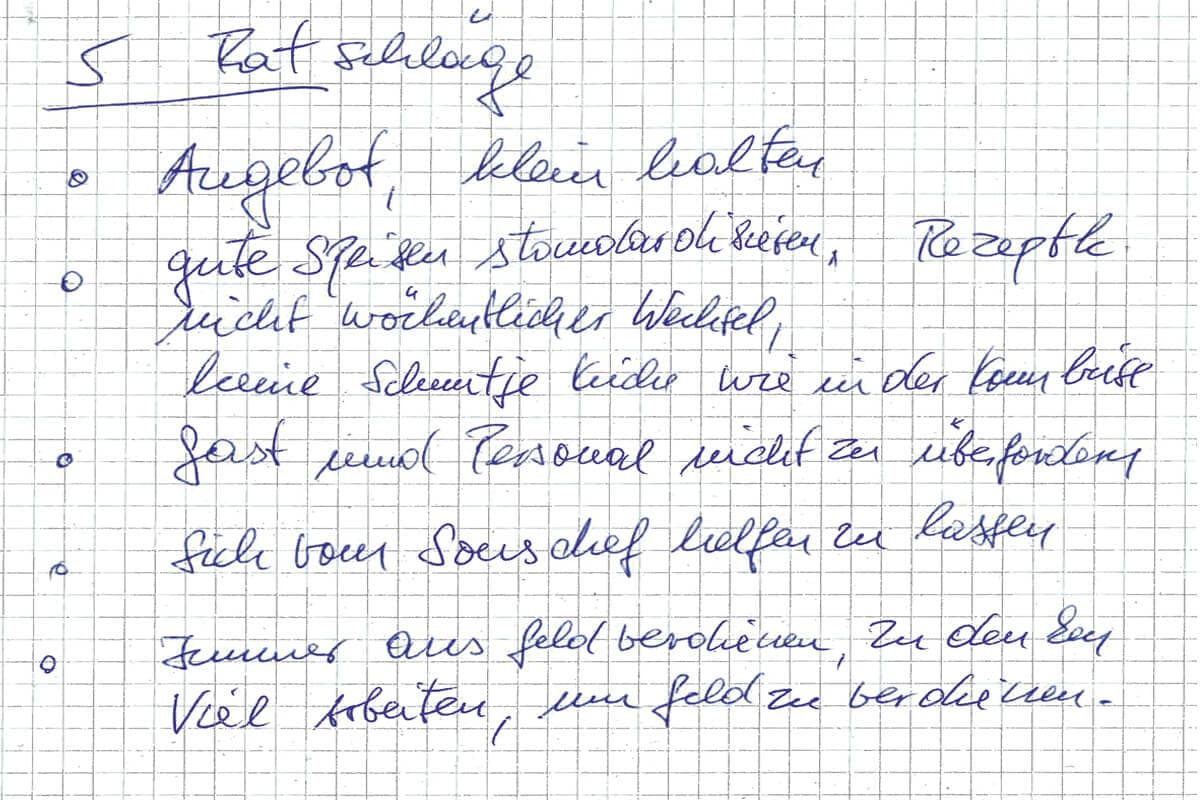 5 Ratschläge
Angebot, klein halten
gute Speisen standardisieren, Rezeptk.
nicht wöchentlicher Wechsel,
keine Schmutje Küche wie in der Kombüse
Gast und Personal nicht zu überfordern
Sich vom Souschef helfen zu lassen
Immer ans Geld verdienen, zu den
Viel Arbeiten, um Geld zu verdienen.